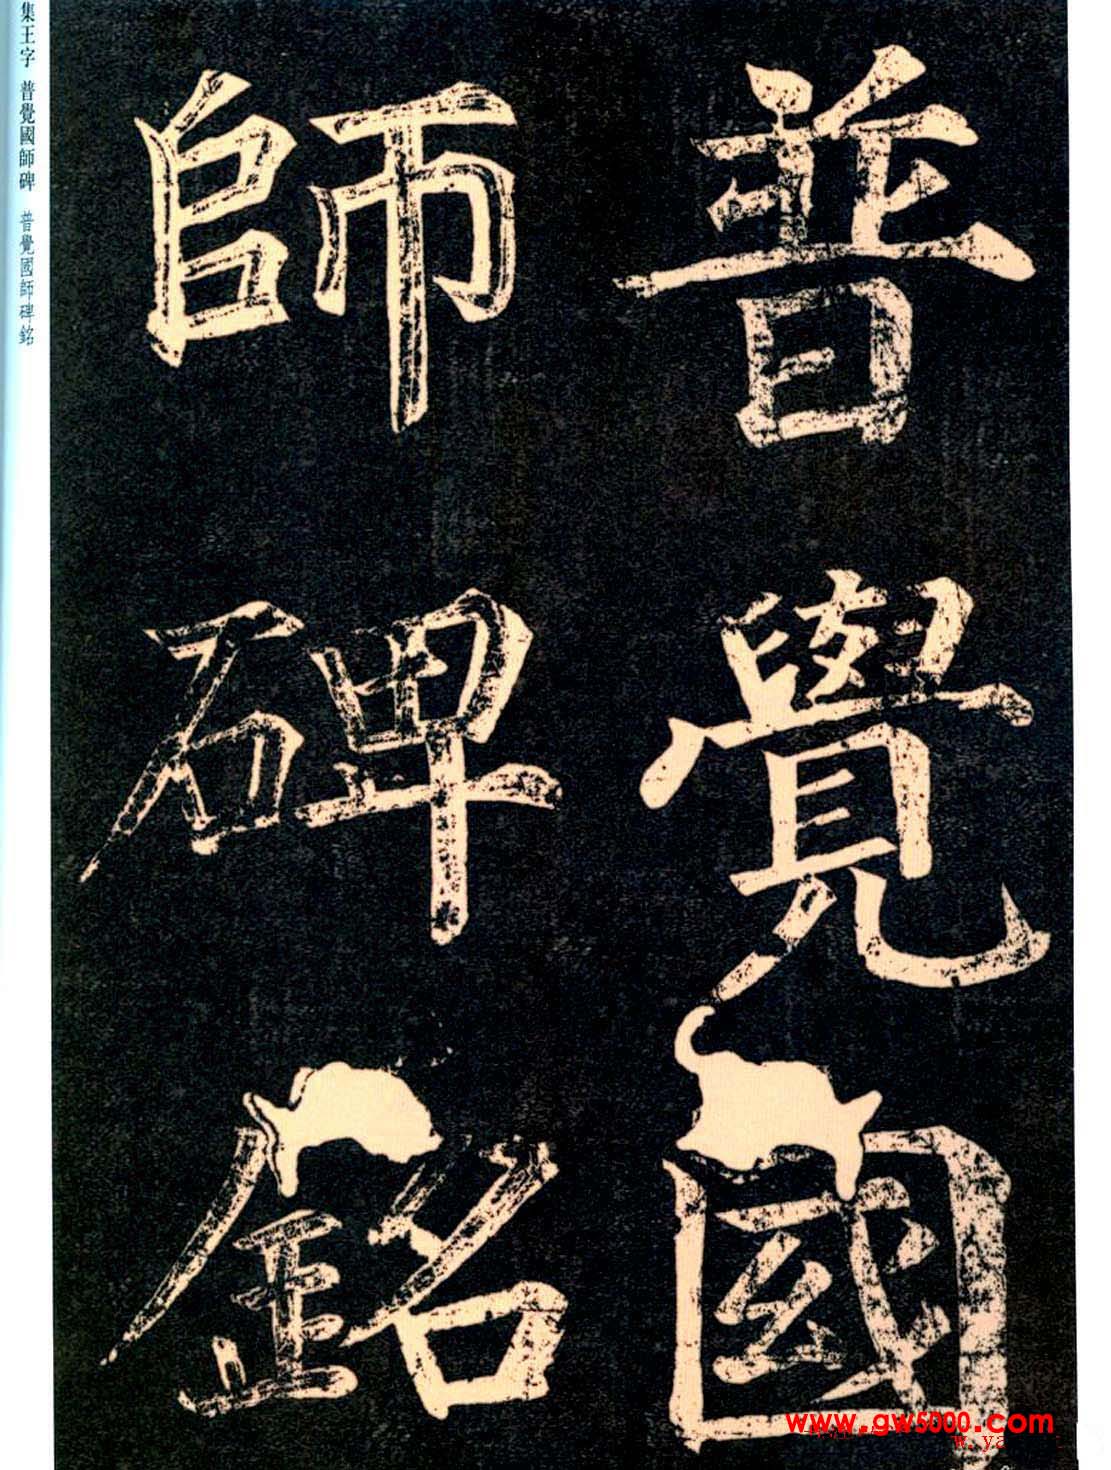 普覺國
師碑銘
集王字 普覺國師碑 普覺國師碑銘
www.gw5000.com